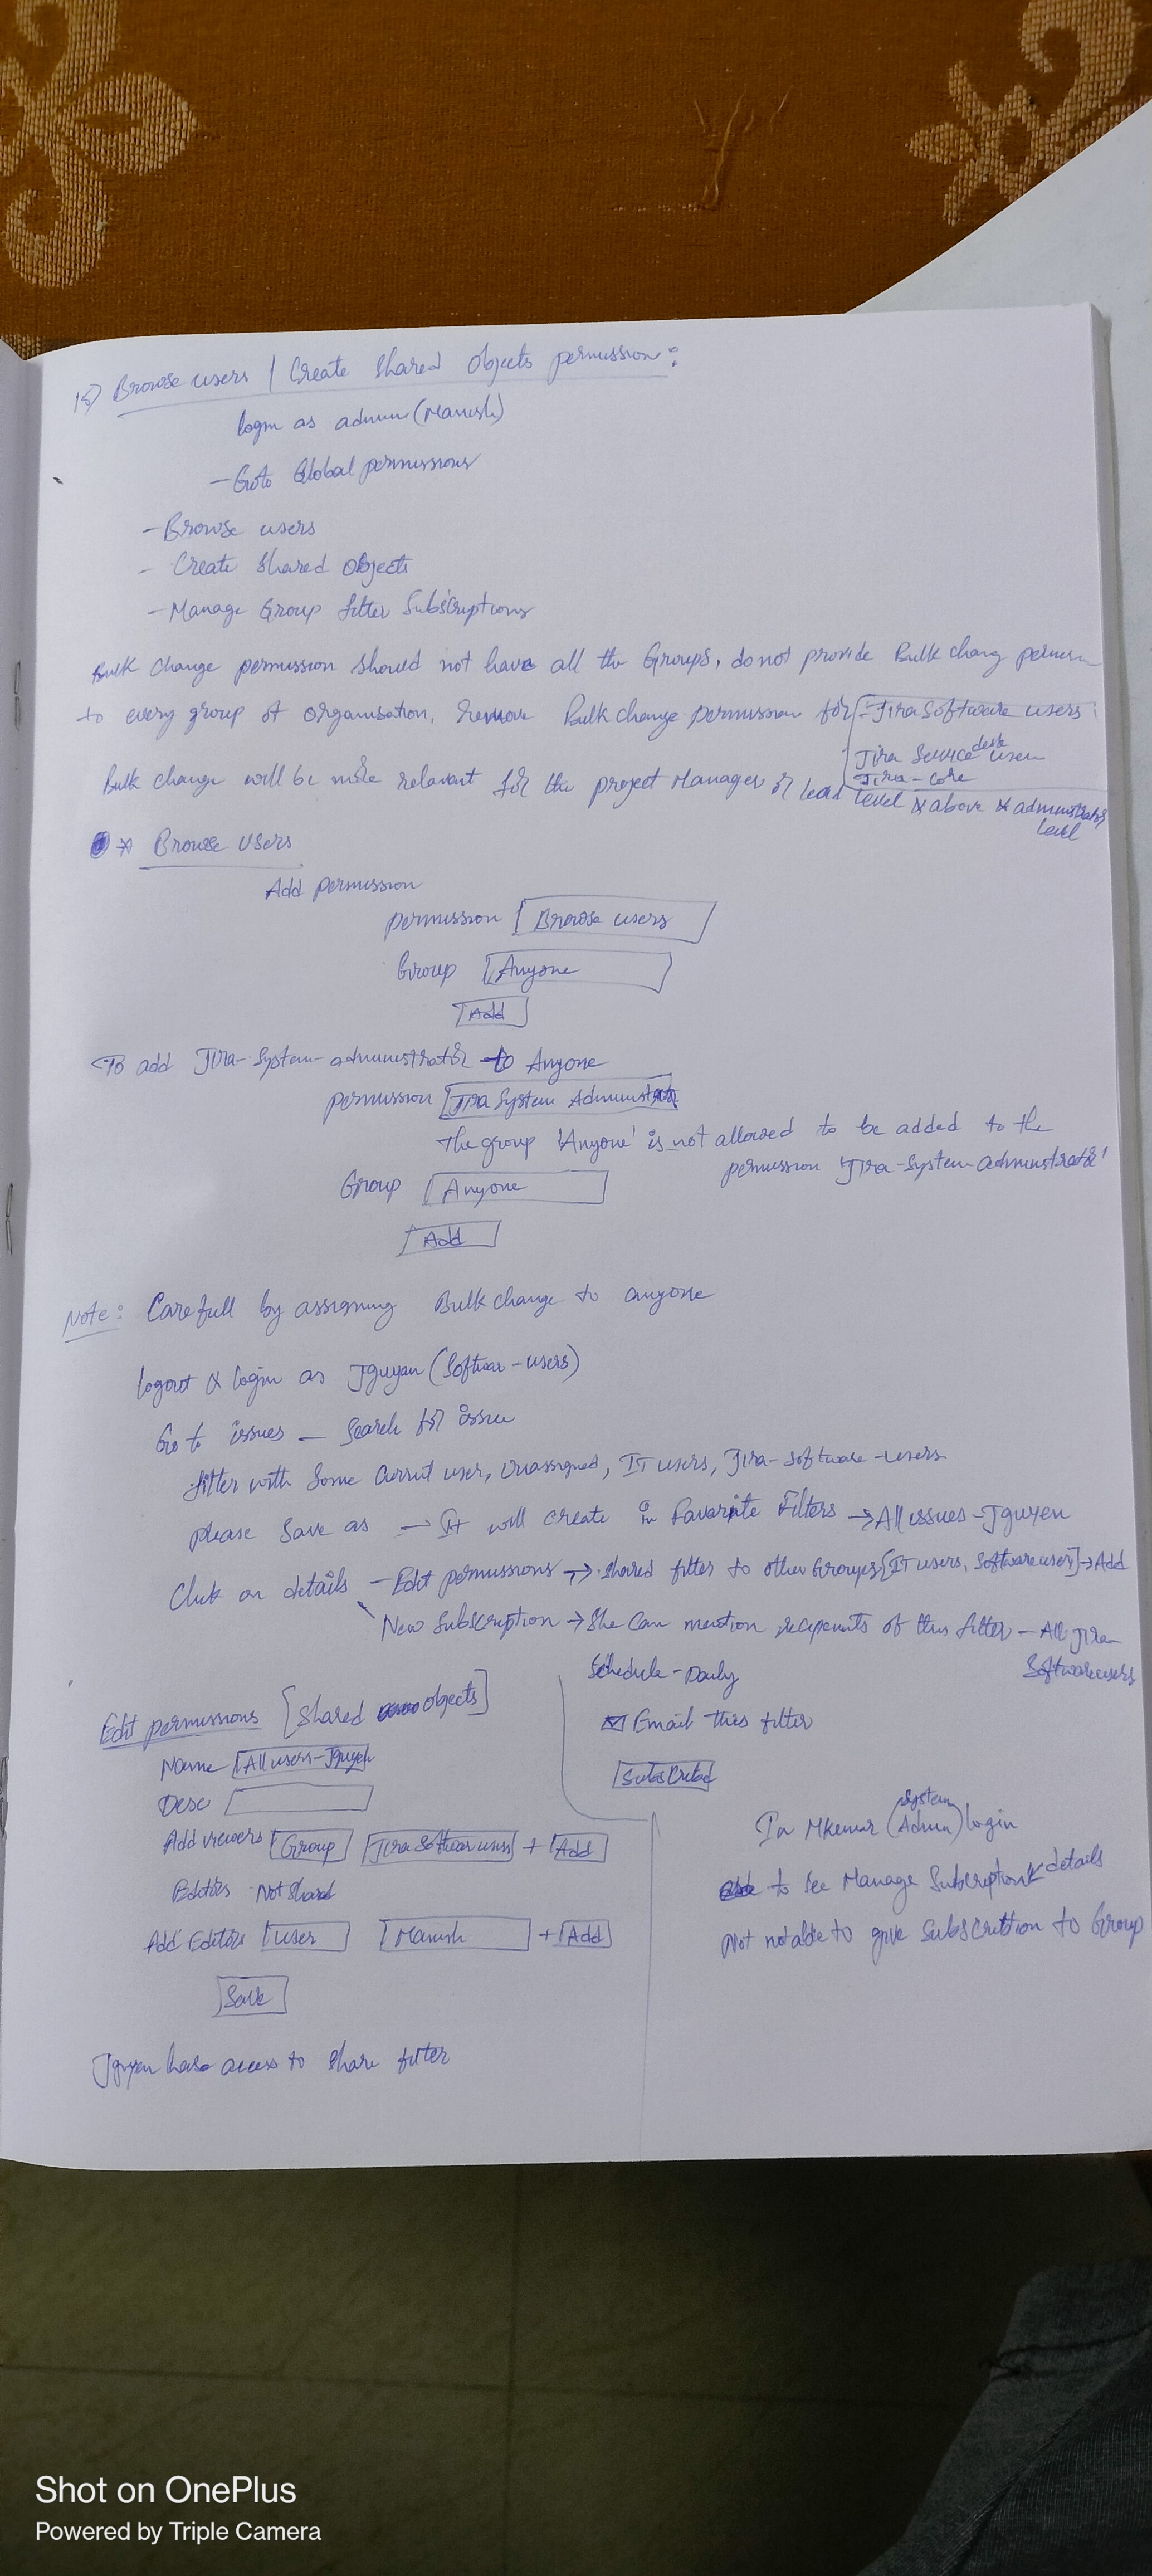 15) Browse users / Create Shared Objects permission:
login as admin (Manish)
- Goto Global permissions
- Browse users
- Create Shared Objects
- Manage Group filter Subscriptions
Bulk Change permission should not have all the Groups, do not provide Bulk chang
to every group of organisation, Remove Bulk change permission for - Jira Software users
Jira Service desk user
Jira - Core
Bulk change will be more relavant for the project Manager or lead level & above & administrator level
* Browse Users
Add permission
permission Browse users
Group Anyone
Add
To add Jira-System-administrator to Anyone
permission Jira System Administrator
The group 'Anyone' is not allowed to be added to the
permission 'Jira-System-administrator'
Group Anyone
Add
Note: Carefull by assigning Bulk change to anyone
logout & login as Jguyan (Softwar-users)
Go to issues - Search for issue
filter with Some Current user, Unassigned, IT users, Jira-Software-users
please Save as → It will create in Favorite Filters → All issues - Jguyen
Click on details - Edit permissions → shared filter to other Groups [IT users, Software user] → Add
New Subscription → She Can mention recipents of this filter - All Jira
Software users
Schedule - Daily
Email this filter
Edit permissions [Shared objects]
Name All users - Jguyen
Desc
Add viewers Group Jira Software users + Add
Editors Not Shared
Add Editors User Manish + Add
Save
Jguyen have access to Share filter
In Mkumar (System Admin) login
to See Manage Subscription details
Not notable to give Subscribtion to Group
Shot on OnePlus
Powered by Triple Camera